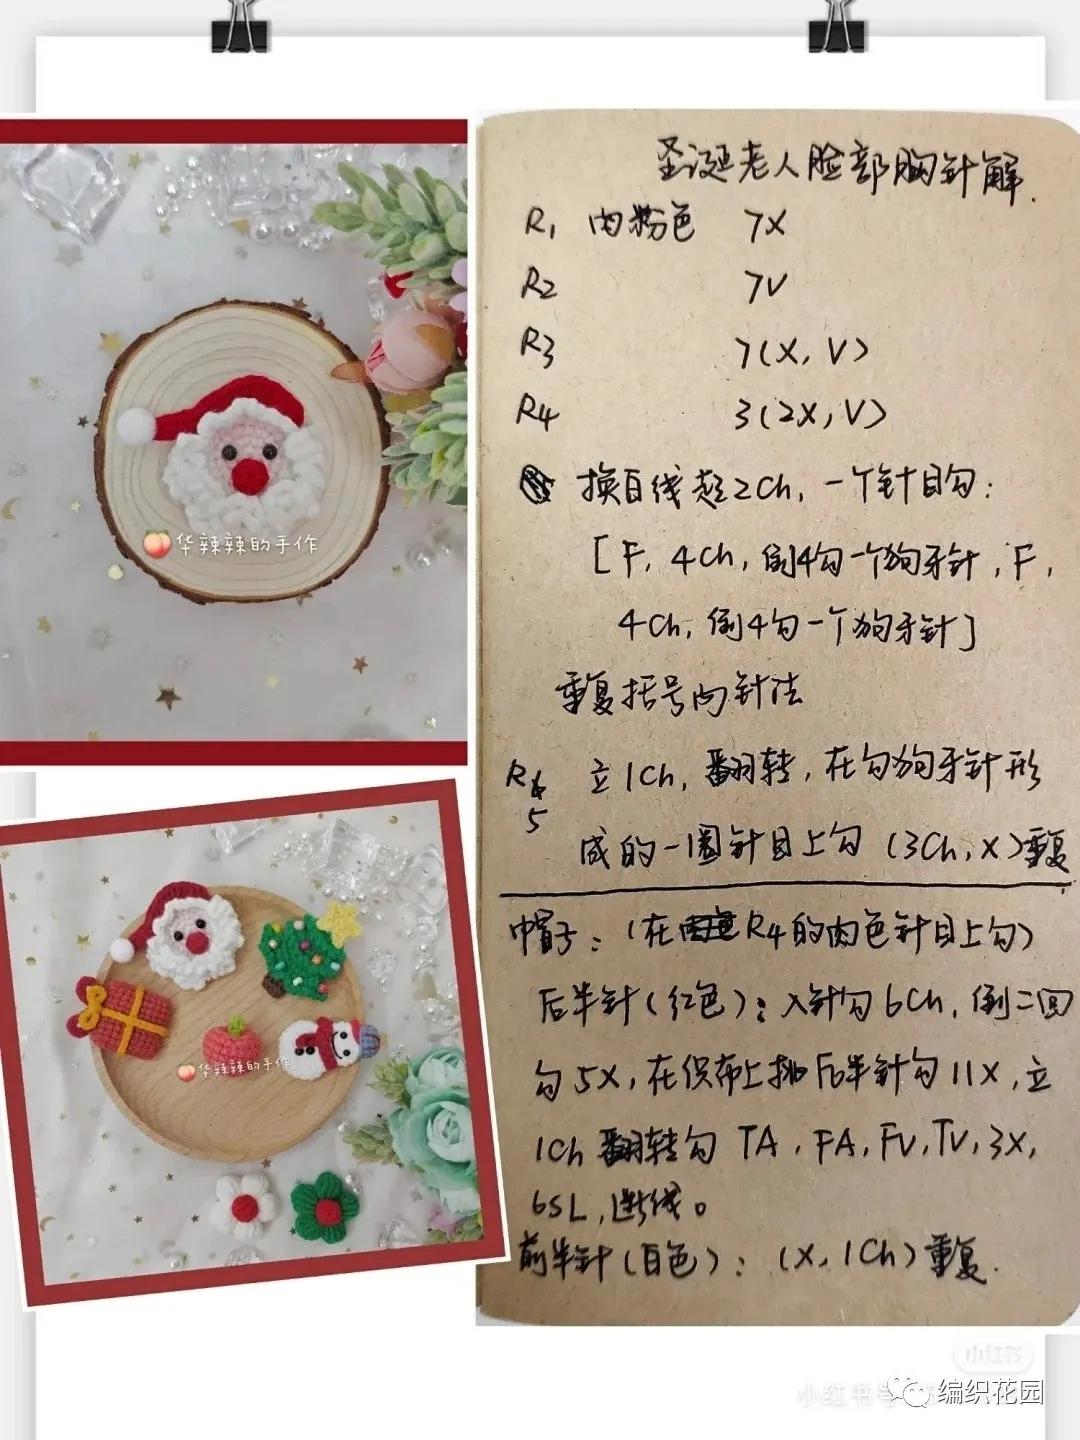 圣诞老人脸部胸针解.
R1 肉粉色 7X
R2 7V
R3 7(X, V)
R4 3(2X, V)
换白线起2Ch, 一个针目勾:
[F, 4Ch, 倒4勾一个狗牙针, F,
4Ch, 倒4勾一个狗牙针]
重复括号内针法
R5 立1Ch, 翻转, 在勾狗牙针形
成的一圈针目上勾 (3Ch, X)重复
帽子: (在R4的肉色针目上勾)
后半针(红色): 入针勾6Ch, 倒二回
勾5X, 在织布上挑后半针勾11X, 立
1Ch翻转勾 TA, FA, FV, TV, 3X,
6SL, 断线。
前半针(白色): (X, 1Ch)重复.
华辣辣的手作
华辣辣的手作
小红书
小红书号
编织花园